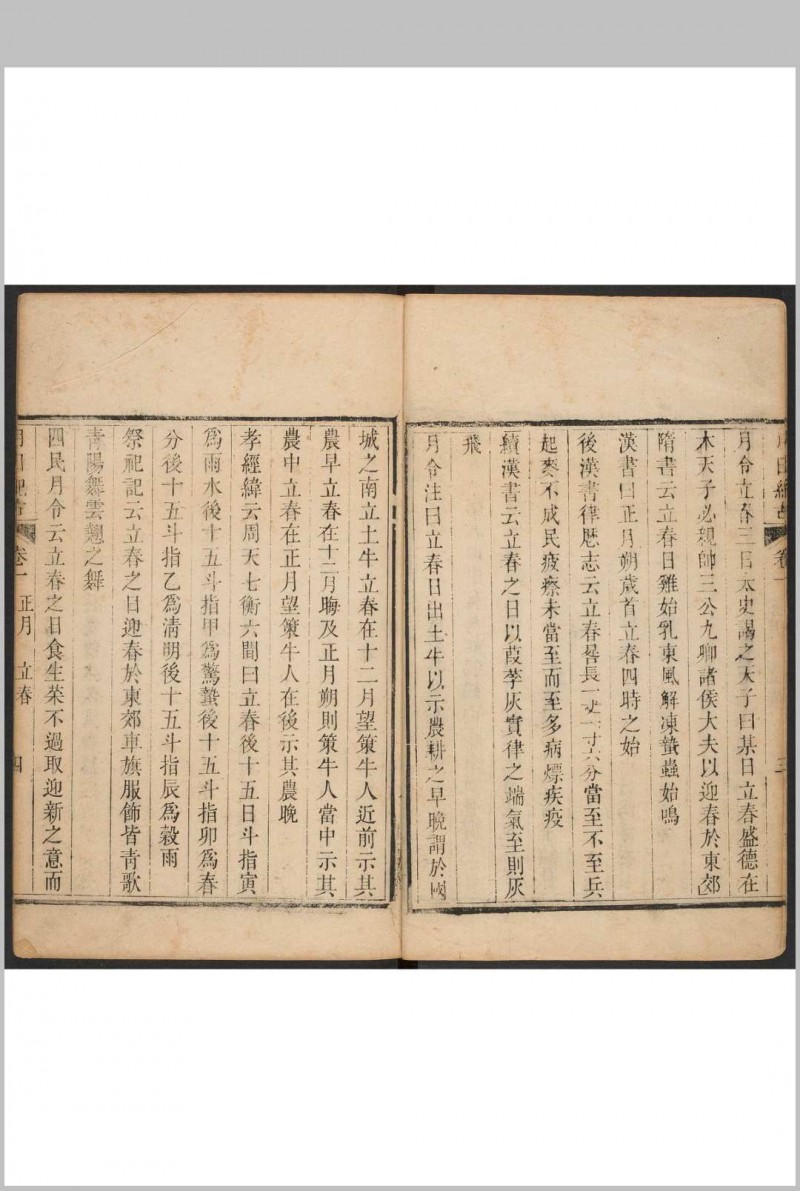 月令立春三日太史謁之天子曰某日立春盛德在
木天子必親帥三公九卿諸侯大夫以迎春於東郊
隋書云立春日雞始乳東風解凍蟄蟲始鳴
漢書曰正月朔歲首立春四時之始
後漢書律厯志云立春晷長一丈一寸六分當至不至兵
起麥不成民疲瘵未當至而至多病熛疾疫
續漢書云立春之日以葭莩灰實律之端氣至則灰
飛
月令注曰立春日出土牛以示農耕之早晚謂於國
城之南立土牛立春在十二月望策牛人近前示其
農早立春在十二月晦及正月朔則策牛人當中示其
農中立春在正月望策牛人在後示其農晚
孝經緯云周天七衡六間曰立春後十五日斗指寅
爲雨水後十五斗指甲爲驚蟄後十五斗指卯爲春
分後十五斗指乙爲清明後十五斗指辰爲穀雨
祭祀記云立春之日迎春於東郊車旗服飾皆青歌
青陽舞雲翹之舞
四民月令云立春之日食生菜不過取迎新之意而
卷一 正月 立春 四